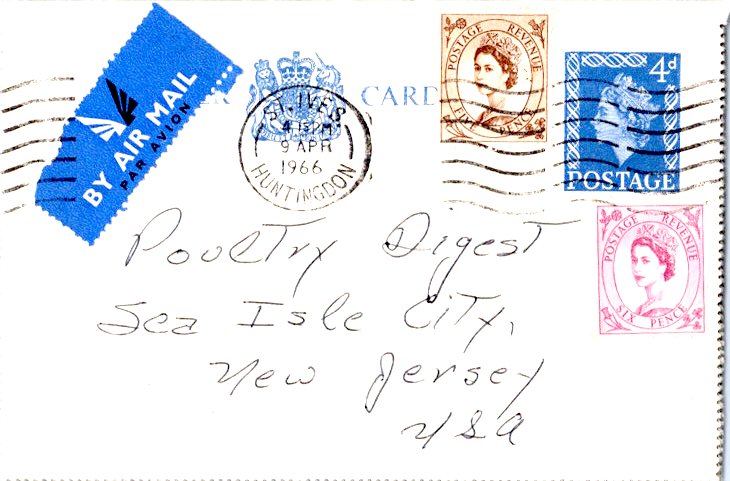 BY AIR MAIL
PAR AVION
CARD
ST. IVES
4 15 PM
9 APR
1966
HUNTINGDON
POSTAGE REVENUE
FIVE PENCE
4d
POSTAGE
POSTAGE REVENUE
SIX PENCE
Poultry Digest
Sea Isle City,
New Jersey
USA